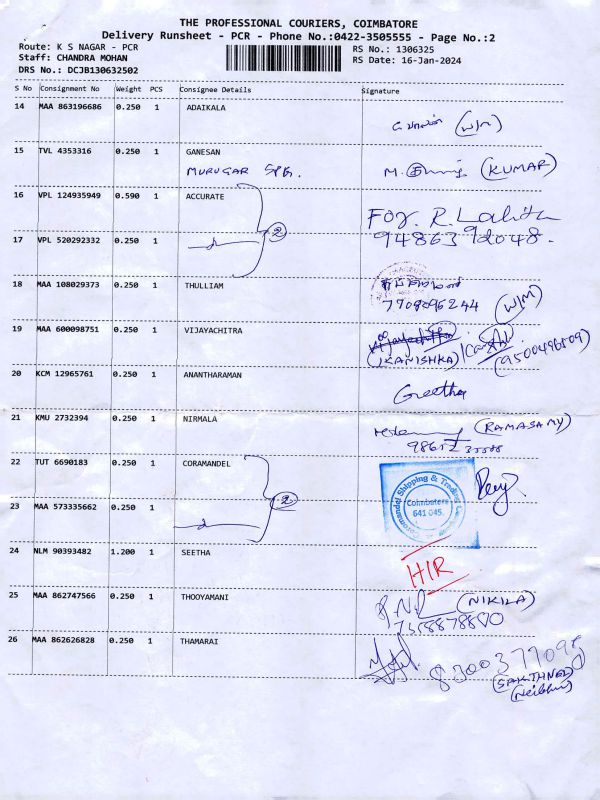 THE PROFESSIONAL COURIERS, COIMBATORE
Delivery Runsheet - PCR - Phone No.:0422-3505555 - Page No.:2
Route: K S NAGAR - PCR
RS No.: 1306325
Staff: CHANDRA MOHAN
RS Date: 16-Jan-2024
DRS No.: DCJB130632502
S No Consignment No Weight PCS Consignee Details Signature
14 MAA 863196686 0.250 1 ADAIKALA
(W/M)
15 TVL 4353316 0.250 1 GANESAN
MURUGAR M. (KUMAR)
16 VPL 124935949 0.590 1 ACCURATE
For. R. Lalitha
2 94863 92048.
17 VPL 520292332 0.250 1
18 MAA 108029373 0.250 1 THULLIAM
7708096244 (W/M)
19 MAA 600098751 0.250 1 VIJAYACHITRA
(KANISHKA)
20 KCM 12965761 0.250 1 ANANTHARAMAN
Geetha
21 KMU 2732394 0.250 1 NIRMALA
(RAMASAMY)
22 TUT 6690183 0.250 1 CORAMANDEL
Coromandel Shipping & Trading
2 Coimbatore
641 045.
23 MAA 573335662 0.250 1
24 NLM 90393482 1.200 1 SEETHA
HIR
25 MAA 862747566 0.250 1 THOOYAMANI
(NIKILA)
7358878880
26 MAA 862626828 0.250 1 THAMARAI
8300377098